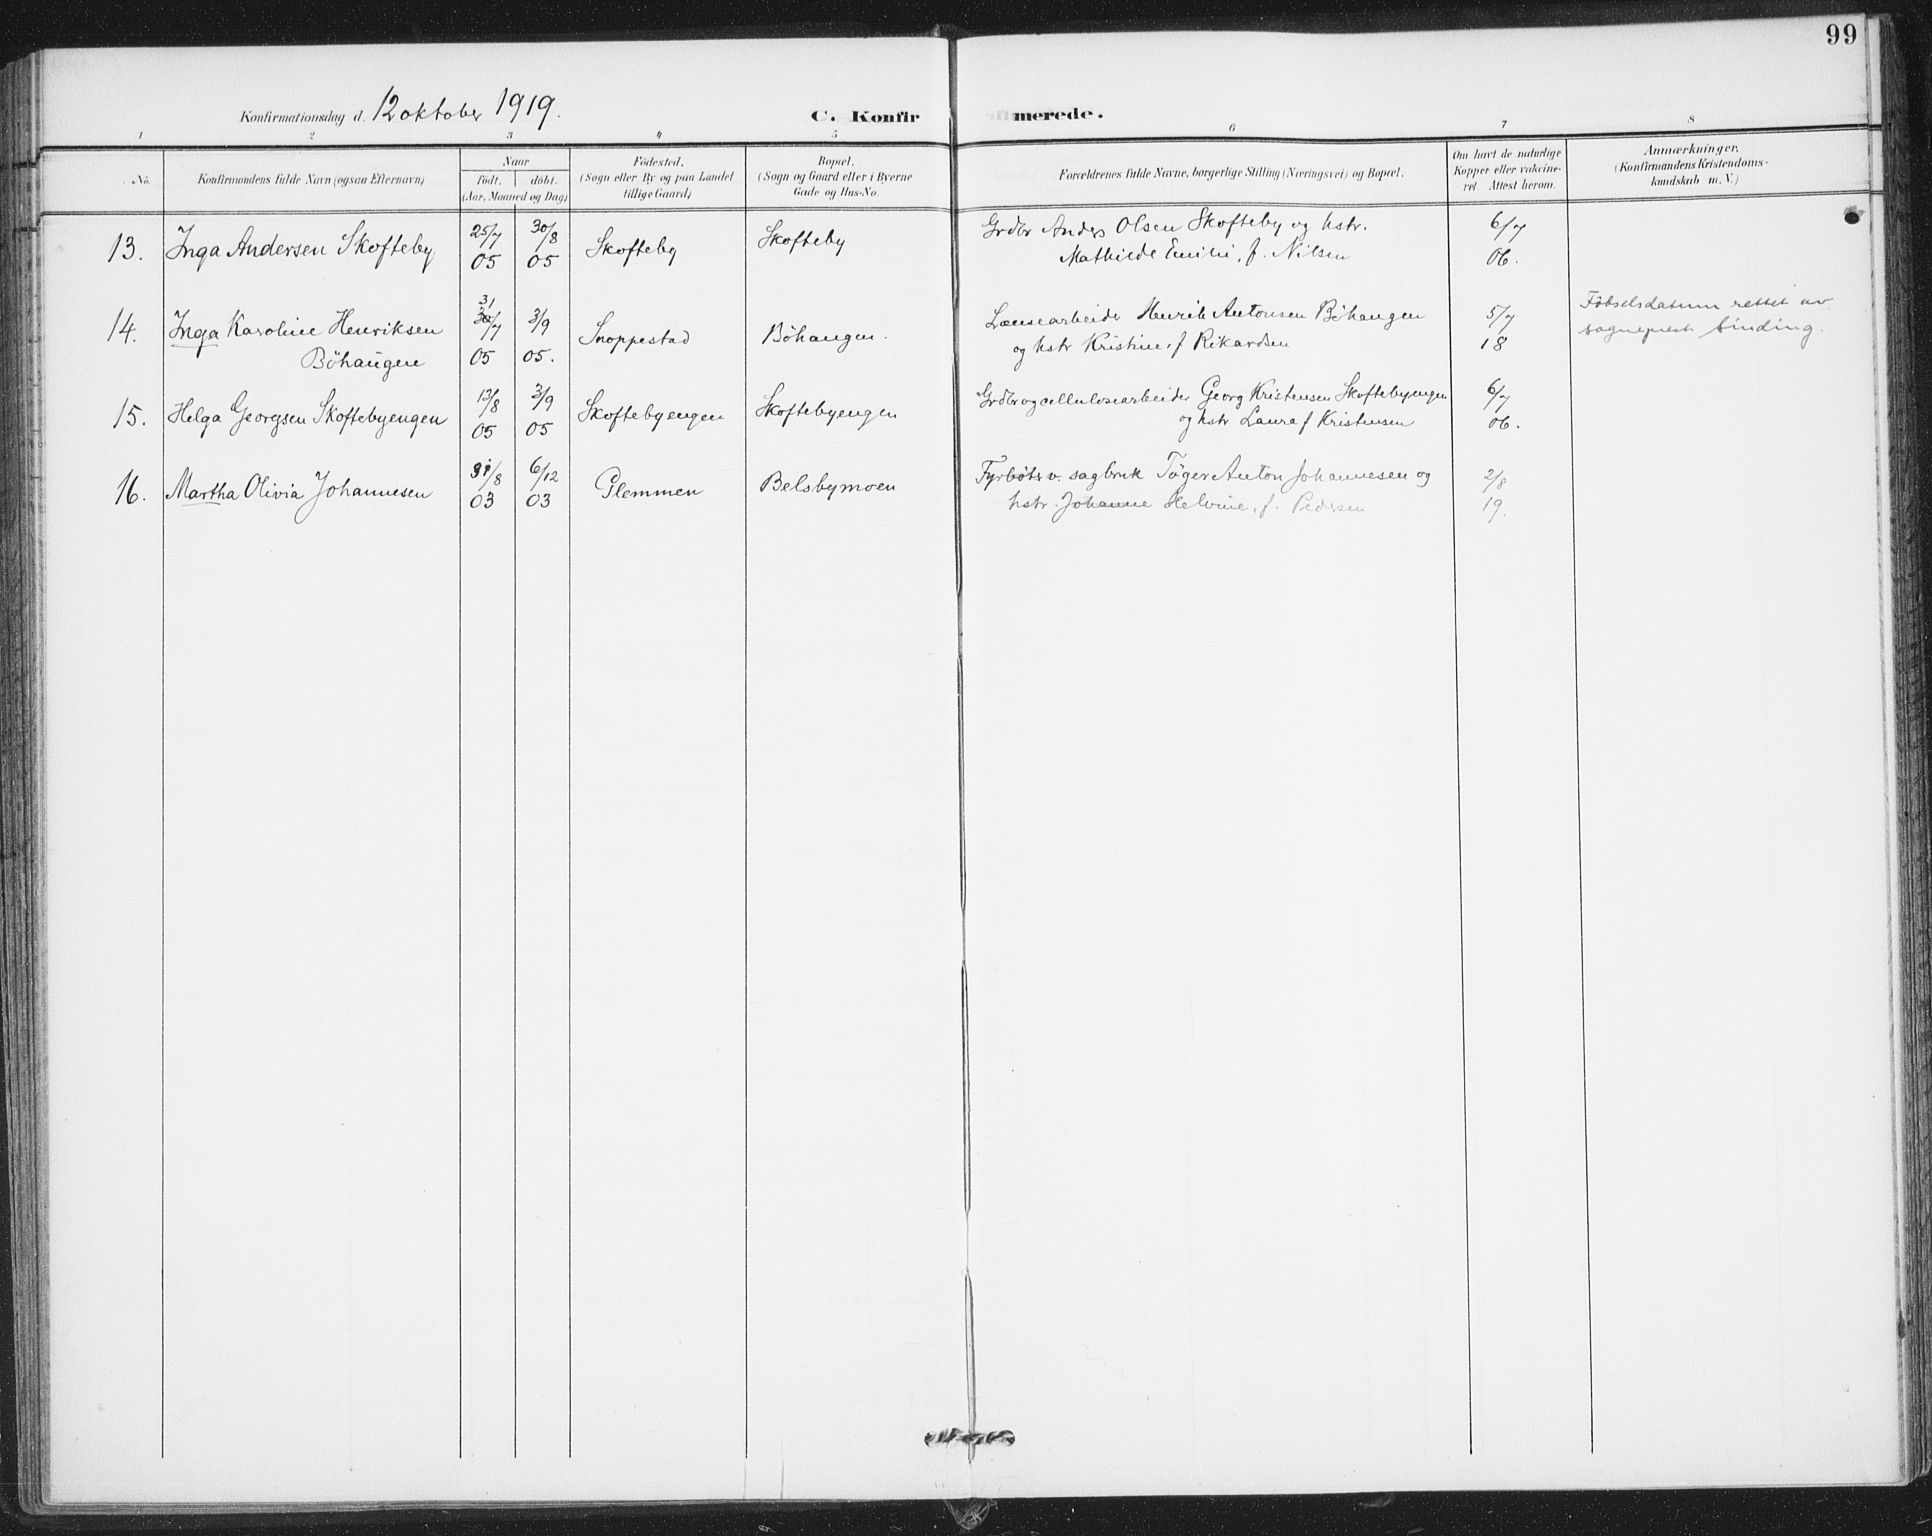 99
Konfirmationsdag d. 12 oktober 1919. C. Konfirmerede.
1 2 3 4 5 6 7 8
No. Konfirmandens fulde Navn (ogsaa Efternavn) Naar födt. döbt. (Aar, Maaned og Dag) Födested. (Sogn eller By og paa Landet tillige Gaard) Bopæl. (Sogn og Gaard eller i Byerne Gade og Hus-No. Forældrenes fulde Navne, borgerlige Stilling (Næringsvei) og Bopæl. Om havt de naturlige Kopper eller vakcineret. Attest herom. Anmærkninger. (Konfirmandens Kristendomskundskab m. V.)
13. Inga Andersen Skofteby 25/7 05 30/8 05 Skofteby Skofteby Grdbr Anders Olsen Skofteby og hstr.
Mathilde Emilie, f. Nilsen 6/7 06.
14. Inga Karoline Henriksen 31 30/7 05 3/9 05. Snoppestad Böhaugen. Lænsearbeider Henrik Antonsen Böhaugen 5/7 18 Födselsdatum rettet av
Böhaugen og hstr Kristine, f Rikardsen sogneprest Sinding.
15. Helga Georgsen Skoftebyengen 13/8 05 3/9 05 Skoftebyengen Skoftebyengen Grdbr og cellulosearbeider Georg Kristensen Skoftebyengen
og hstr Laura f Kristensen 6/7 06.
16. Martha Olivia Johannesen 31/8 03 6/12 03 Glemmen Belsbymoen Fyrböter v. sagbruk Töger Anton Johannesen og
hstr. Johanne Helvine, f. Pedersen 2/8 19.